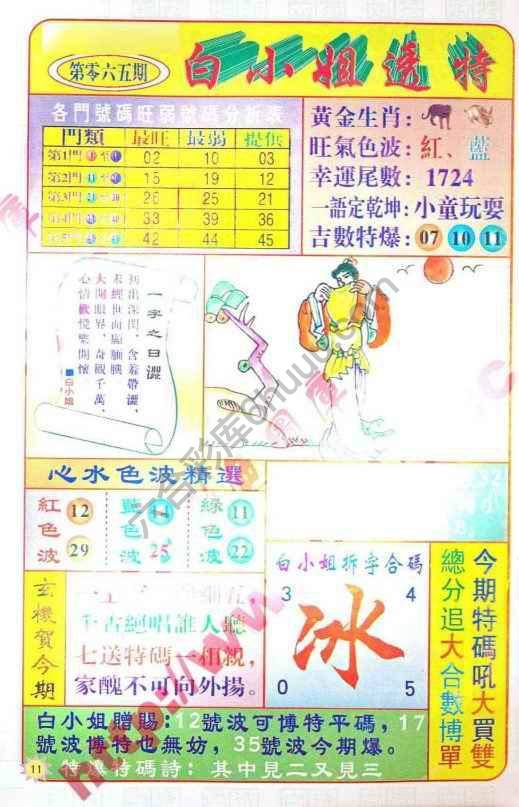 第零六五期
白小姐透特
各門號碼旺弱號碼分析表
門類 最旺 最弱 提供
第1門 02 10 03
第2門 15 19 12
第3門 26 25 21
第4門 33 39 36
第5門 42 44 45
黃金生肖：
旺氣色波：紅、藍
幸運尾數：1724
一語定乾坤：小童玩耍
吉數特爆：07 10 11
一字之曰澀
初出深閨，含羞帶澀，
未經世面顯腼腆，
大開眼界，奇觀千萬，
心情歡悅樂開懷。
■白小姐
心水色波精選
紅色波 12 29
藍色波 14 25
綠色波 11 22
玄機賀今期
千古絕唱誰人聽
七送特碼一相親，
家醜不可向外揚。
白小姐拆字合碼
3 4
冰
0 5
今期特碼吼大買雙
總分追大合數博單
白小姐贈賜：12號波可博特平碼，17
號波博特也無妨，35號波今期爆。
11
特爆特碼詩：其中見二又見三
六合彩库6huuu.com